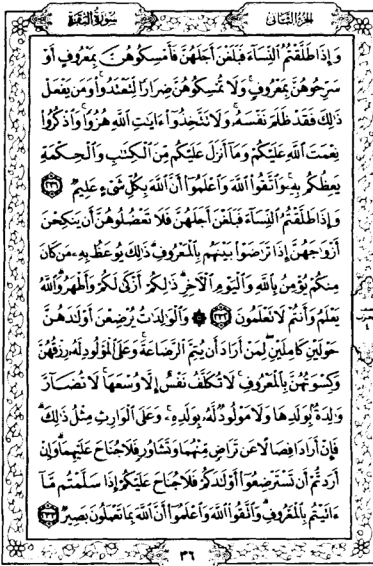 سورة البقرة
الجزء الثاني
وَإِذَا طَلَّقْتُمُ ٱلنِّسَآءَ فَبَلَغْنَ أَجَلَهُنَّ فَأَمْسِكُوهُنَّ بِمَعْرُوفٍ أَوْ
سَرِّحُوهُنَّ بِمَعْرُوفٍ ۚ وَلَا تُمْسِكُوهُنَّ ضِرَارًا لِّتَعْتَدُوا۟ ۚ وَمَن يَفْعَلْ
ذَٰلِكَ فَقَدْ ظَلَمَ نَفْسَهُۥ ۚ وَلَا تَتَّخِذُوٓا۟ ءَايَٰتِ ٱللَّهِ هُزُوًا ۚ وَٱذْكُرُوا۟
نِعْمَتَ ٱللَّهِ عَلَيْكُمْ وَمَآ أَنزَلَ عَلَيْكُم مِّنَ ٱلْكِتَٰبِ وَٱلْحِكْمَةِ
يَعِظُكُم بِهِۦ ۚ وَٱتَّقُوا۟ ٱللَّهَ وَٱعْلَمُوٓا۟ أَنَّ ٱللَّهَ بِكُلِّ شَىْءٍ عَلِيمٌ ٢٣١
وَإِذَا طَلَّقْتُمُ ٱلنِّسَآءَ فَبَلَغْنَ أَجَلَهُنَّ فَلَا تَعْضُلُوهُنَّ أَن يَنكِحْنَ
أَزْوَٰجَهُنَّ إِذَا تَرَٰضَوْا۟ بَيْنَهُم بِٱلْمَعْرُوفِ ۗ ذَٰلِكَ يُوعَظُ بِهِۦ مَن كَانَ
مِنكُمْ يُؤْمِنُ بِٱللَّهِ وَٱلْيَوْمِ ٱلْءَاخِرِ ۗ ذَٰلِكُمْ أَزْكَىٰ لَكُمْ وَأَطْهَرُ ۗ وَٱللَّهُ
يَعْلَمُ وَأَنتُمْ لَا تَعْلَمُونَ ٢٣٢ ۞ وَٱلْوَٰلِدَٰتُ يُرْضِعْنَ أَوْلَٰدَهُنَّ
حَوْلَيْنِ كَامِلَيْنِ ۖ لِمَنْ أَرَادَ أَن يُتِمَّ ٱلرَّضَاعَةَ ۚ وَعَلَى ٱلْمَوْلُودِ لَهُۥ رِزْقُهُنَّ
وَكِسْوَتُهُنَّ بِٱلْمَعْرُوفِ ۚ لَا تُكَلَّفُ نَفْسٌ إِلَّا وُسْعَهَا ۚ لَا تُضَآرَّ
وَٰلِدَةٌۢ بِوَلَدِهَا وَلَا مَوْلُودٌ لَّهُۥ بِوَلَدِهِۦ ۚ وَعَلَى ٱلْوَارِثِ مِثْلُ ذَٰلِكَ ۗ
فَإِنْ أَرَادَا فِصَالًا عَن تَرَاضٍ مِّنْهُمَا وَتَشَاوُرٍ فَلَا جُنَاحَ عَلَيْهِمَا ۗ وَإِنْ
أَرَدتُّمْ أَن تَسْتَرْضِعُوٓا۟ أَوْلَٰدَكُمْ فَلَا جُنَاحَ عَلَيْكُمْ إِذَا سَلَّمْتُم مَّآ
ءَاتَيْتُم بِٱلْمَعْرُوفِ ۗ وَٱتَّقُوا۟ ٱللَّهَ وَٱعْلَمُوٓا۟ أَنَّ ٱللَّهَ بِمَا تَعْمَلُونَ بَصِيرٌ ٢٣٣
٣٦